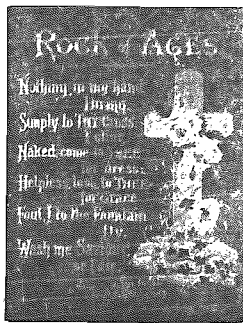 ROCK of AGES
Nothing in my hand
I bring
Simply to THY Cross
Naked, come to
for dress
Helpless, look to THEE
for Grace
Foul, I to the Fountain
Fly
Wash me